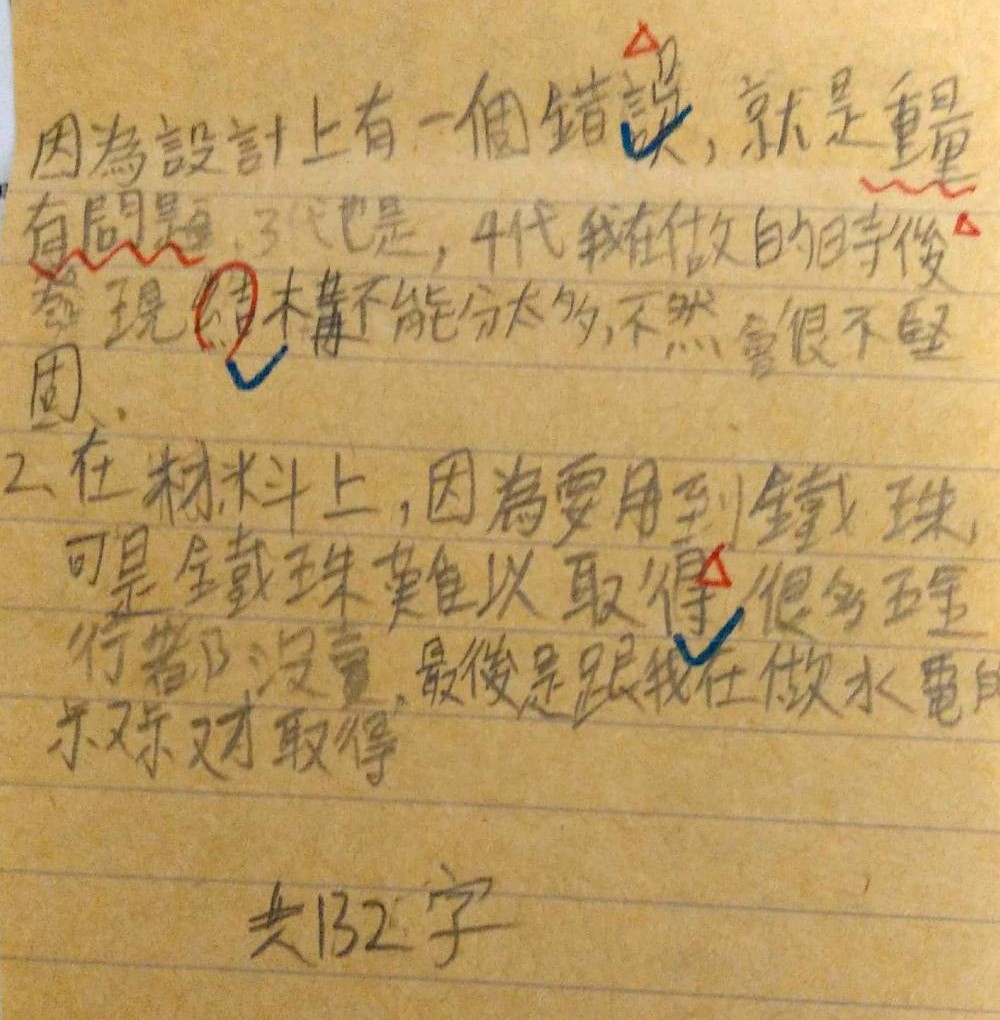 因為設計上有一個錯誤,就是重量
有問題、3代也是,4代我在做的時後
發現結構不能分太多,不然會很不堅
固、
2、在材料上,因為要用到鐵珠,
可是鐵珠難以取得,很多五金
行都沒賣,最後是跟我在做水電的
叔叔才取得
共132字